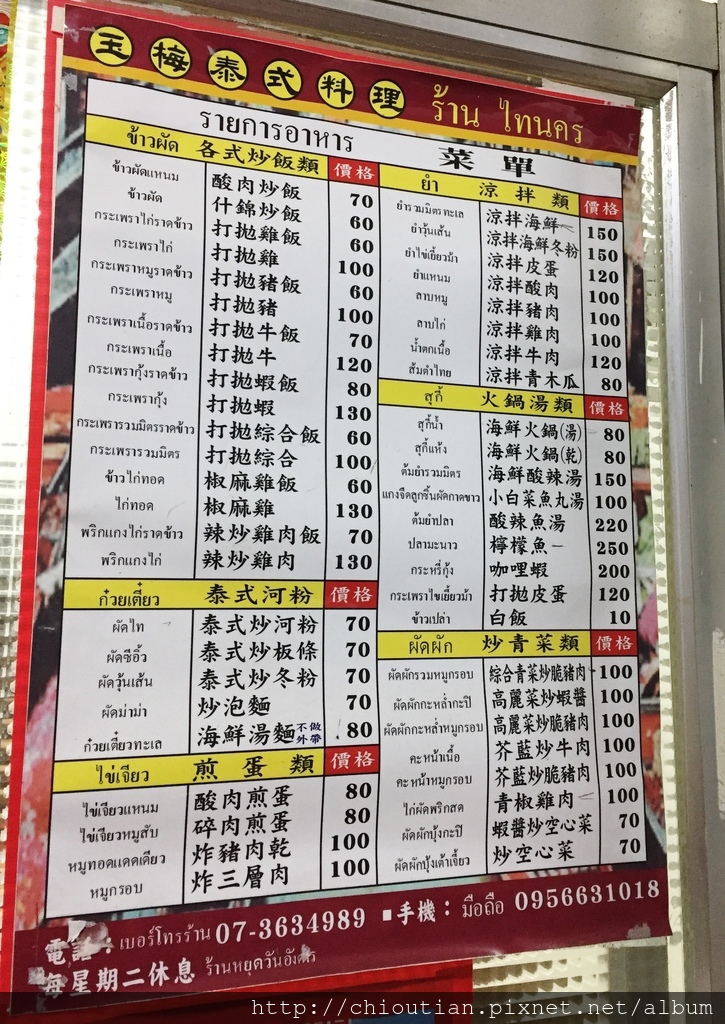 玉梅泰式料理 ร้าน ไทนคร
รายการอาหาร 菜單
ข้าวผัด 各式炒飯類 價格
ข้าวผัดแหนม 酸肉炒飯 70
ข้าวผัด 什錦炒飯 60
กระเพราไก่ราดข้าว 打拋雞飯 60
กระเพราไก่ 打拋雞 100
กระเพราหมูราดข้าว 打拋豬飯 60
กระเพราหมู 打拋豬 100
กระเพราเนื้อราดข้าว 打拋牛飯 70
กระเพราเนื้อ 打拋牛 120
กระเพรากุ้งราดข้าว 打拋蝦飯 80
กระเพรากุ้ง 打拋蝦 130
กระเพรารวมมิตรราดข้าว 打拋綜合飯 60
กระเพรารวมมิตร 打拋綜合 100
ข้าวไก่ทอด 椒麻雞飯 60
ไก่ทอด 椒麻雞 130
พริกแกงไก่ราดข้าว 辣炒雞肉飯 70
พริกแกงไก่ 辣炒雞肉 130
ก๋วยเตี๋ยว 泰式河粉 價格
ผัดไท 泰式炒河粉 70
ผัดซีอิ้ว 泰式炒板條 70
ผัดวุ้นเส้น 泰式炒冬粉 70
ผัดม่าม่า 炒泡麵 70
ก๋วยเตี๋ยวทะเล 海鮮湯麵 不做外帶 80
ไข่เจียว 煎蛋類 價格
ไข่เจียวแหนม 酸肉煎蛋 80
ไข่เจียวหมูสับ 碎肉煎蛋 80
หมูทอดแดดเดียว 炸豬肉乾 100
หมูกรอบ 炸三層肉 100
ยำ 涼拌類 價格
ยำรวมมิตรทะเล 涼拌海鮮 150
ยำวุ้นเส้น 涼拌海鮮冬粉 150
ยำไข่เยี้ยวม้า 涼拌皮蛋 120
ยำแหนม 涼拌酸肉 100
ลาบหมู 涼拌豬肉 100
ลาบไก่ 涼拌雞肉 100
น้ำตกเนื้อ 涼拌牛肉 120
ส้มตำไทย 涼拌青木瓜 80
สุกี้ 火鍋湯類 價格
สุกี้น้ำ 海鮮火鍋(湯) 80
สุกี้แห้ง 海鮮火鍋(乾) 80
ต้มยำรวมมิตร 海鮮酸辣湯 150
แกงจืดลูกชิ้นผัดกาดขาว 小白菜魚丸湯 100
ต้มยำปลา 酸辣魚湯 220
ปลามะนาว 檸檬魚 250
กระหรี่กุ้ง 咖哩蝦 200
กระเพราไข่เยี้ยวม้า 打拋皮蛋 120
ข้าวเปล่า 白飯 10
ผัดผัก 炒青菜類 價格
ผัดผักรวมหมูกรอบ 綜合青菜炒脆豬肉 100
ผัดผักกะหล่ำกะปิ 高麗菜炒蝦醬 100
ผัดผักกะหล่ำหมูกรอบ 高麗菜炒脆豬肉 100
คะหน้าเนื้อ 芥藍炒牛肉 100
คะหน้าหมูกรอบ 芥藍炒脆豬肉 100
ไก่ผัดพริกสด 青椒雞肉 100
ผัดผักบุ้งกะปิ 蝦醬炒空心菜 70
ผัดผักบุ้งเต้าเจี้ยว 炒空心菜 70
電話：เบอร์โทรร้าน 07-3634989 ■手機：มือถือ 0956631018
每星期二休息 ร้านหยุดวันอังคาร
http://chioutian.pixnet.net/album